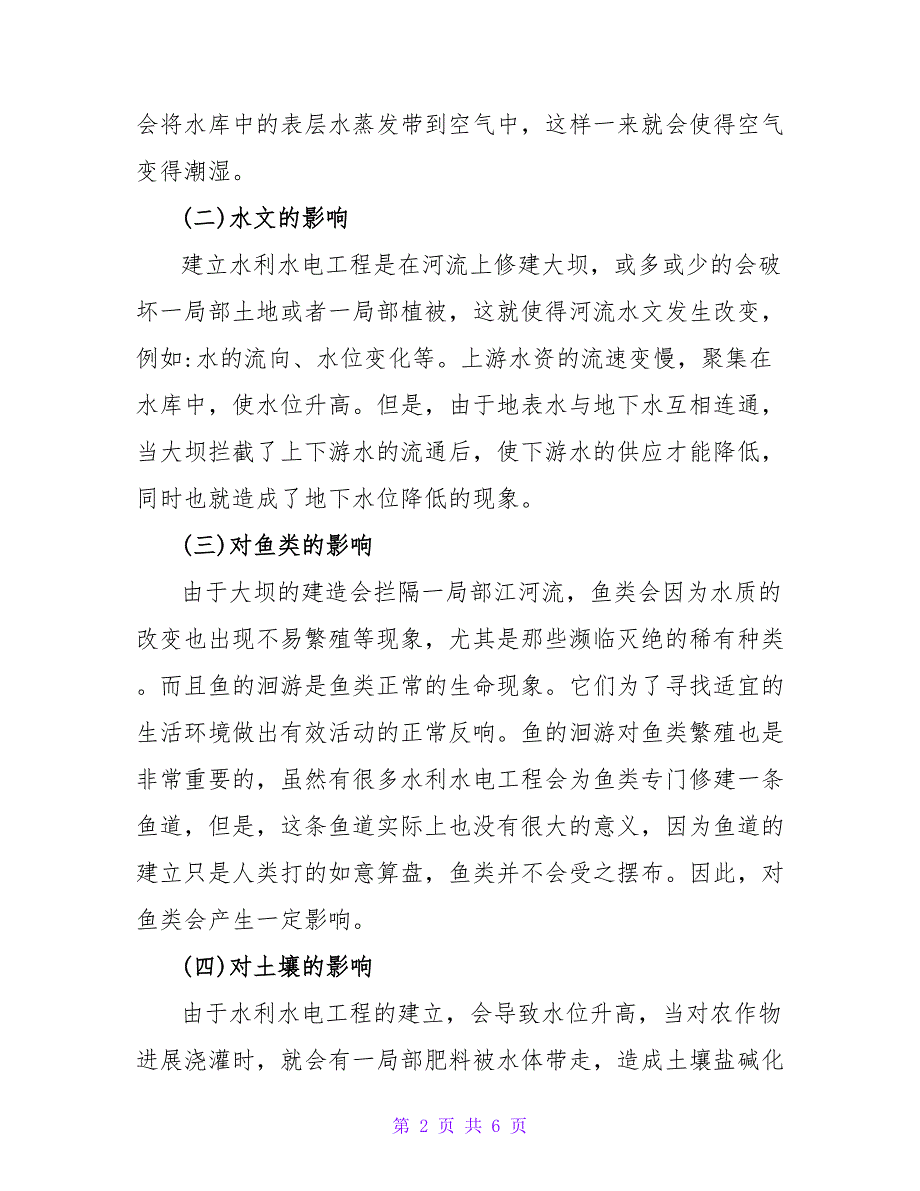 会将水库中的表层水蒸发带到空气中，这样一来就会使得空气
变得潮湿。
(二)水文的影响
建立水利水电工程是在河流上修建大坝，或多或少的会破
坏一局部土地或者一局部植被，这就使得河流水文发生改变，
例如:水的流向、水位变化等。上游水资的流速变慢，聚集在
水库中，使水位升高。但是，由于地表水与地下水互相连通，
当大坝拦截了上下游水的流通后，使下游水的供应才能降低，
同时也就造成了地下水位降低的现象。
(三)对鱼类的影响
由于大坝的建造会拦隔一局部江河流，鱼类会因为水质的
改变也出现不易繁殖等现象，尤其是那些濒临灭绝的稀有种类
。而且鱼的洄游是鱼类正常的生命现象。它们为了寻找适宜的
生活环境做出有效活动的正常反响。鱼的洄游对鱼类繁殖也是
非常重要的，虽然有很多水利水电工程会为鱼类专门修建一条
鱼道，但是，这条鱼道实际上也没有很大的意义，因为鱼道的
建立只是人类打的如意算盘，鱼类并不会受之摆布。因此，对
鱼类会产生一定影响。
(四)对土壤的影响
由于水利水电工程的建立，会导致水位升高，当对农作物
进展浇灌时，就会有一局部肥料被水体带走，造成土壤盐碱化
第 2 页 共 6 页